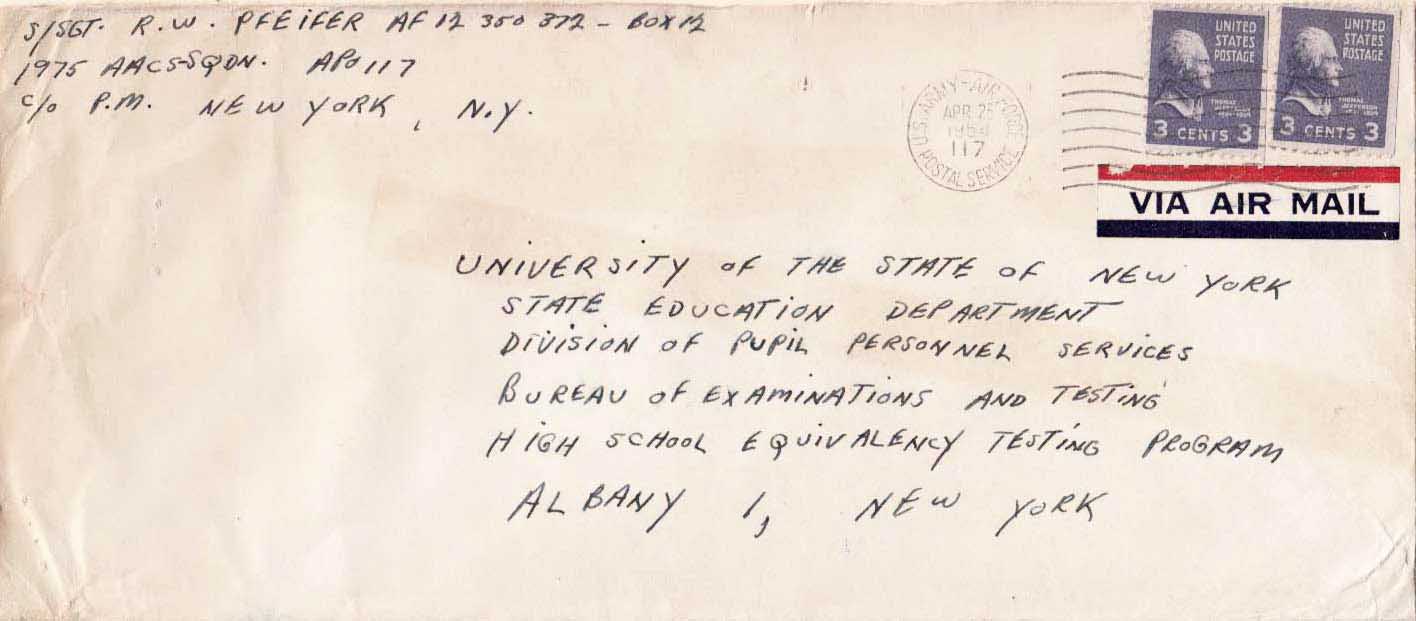 S/SGT. R.W. PFEIFER AF 12 350 372 - BOX 12
1975 AACS-SQDN. APO 117
c/o P.M. NEW YORK, N.Y.
U.S. ARMY-AIR FORCE
APR 25
117
POSTAL SERVICE
UNITED
STATES
POSTAGE
THOMAS
JEFFERSON
3 CENTS 3
UNITED
STATES
POSTAGE
THOMAS
JEFFERSON
3 CENTS 3
VIA AIR MAIL
UNIVERSITY OF THE STATE OF NEW YORK
STATE EDUCATION DEPARTMENT
DIVISION OF PUPIL PERSONNEL SERVICES
BUREAU OF EXAMINATIONS AND TESTING
HIGH SCHOOL EQUIVALENCY TESTING PROGRAM
ALBANY 1, NEW YORK